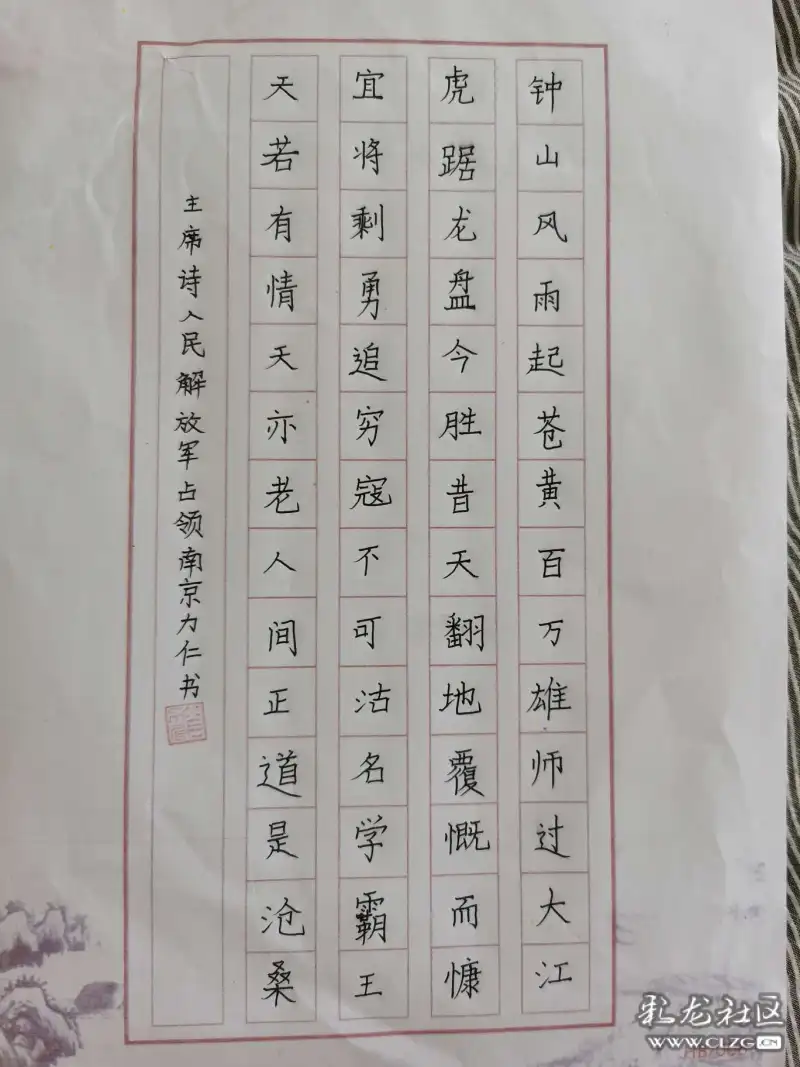 钟山风雨起苍黄百万雄师过大江
虎踞龙盘今胜昔天翻地覆慨而慷
宜将剩勇追穷寇不可沽名学霸王
天若有情天亦老人间正道是沧桑
主席诗人民解放军占领南京力仁书
彩龙社区
WWW.CLZG.CN